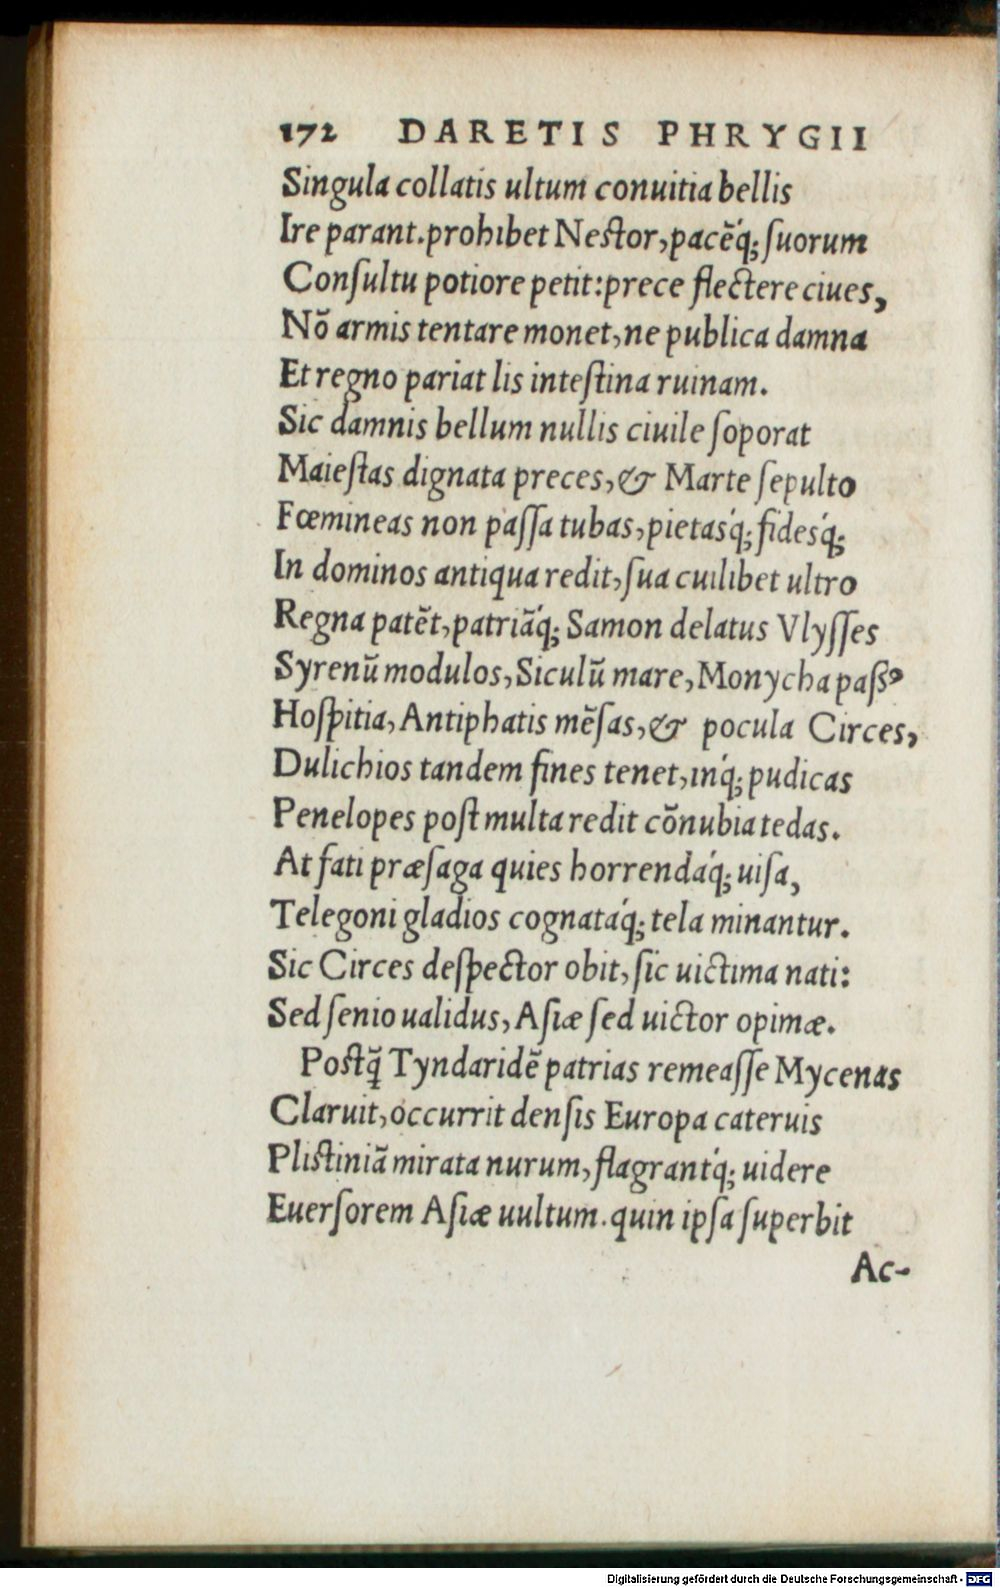 172 DARETIS PHRYGII
Singula collatis ultum conuitia bellis
Ire parant.prohibet Nestor,pacẽq́; ſuorum
Conſultu potiore petit:prece flectere ciues,
Nõ armis tentare monet,ne publica damna
Et regno pariat lis inteſtina ruinam.
Sic damnis bellum nullis ciuile ſoporat
Maieſtas dignata preces,& Marte ſepulto
Fœmineas non paſſa tubas,pietasq́; fidesq́;
In dominos antiqua redit,ſua cuilibet ultro
Regna patẽt,patriãq́; Samon delatus Vlyſſes
Syrenũ modulos,Siculũ mare,Monycha paſſꝰ
Hoſpitia,Antiphatis mẽſas,& pocula Circes,
Dulichios tandem fines tenet,inq́; pudicas
Penelopes poſt multa redit cõnubia tedas.
At fati præſaga quies horrendaq́; uiſa,
Telegoni gladios cognataq́; tela minantur.
Sic Circes deſpector obit,ſic uictima nati:
Sed ſenio ualidus,Aſiæ ſed uictor opimæ.
Poſtq̃ Tyndaridẽ patrias remeaſſe Mycenas
Claruit,occurrit denſis Europa cateruis
Pliſtiniã mirata nurum,flagrantq́; uidere
Euerſorem Aſiæ uultum.quin ipſa ſuperbit
Ac-
Digitalisierung gefördert durch die Deutsche Forschungsgemeinschaft - DFG